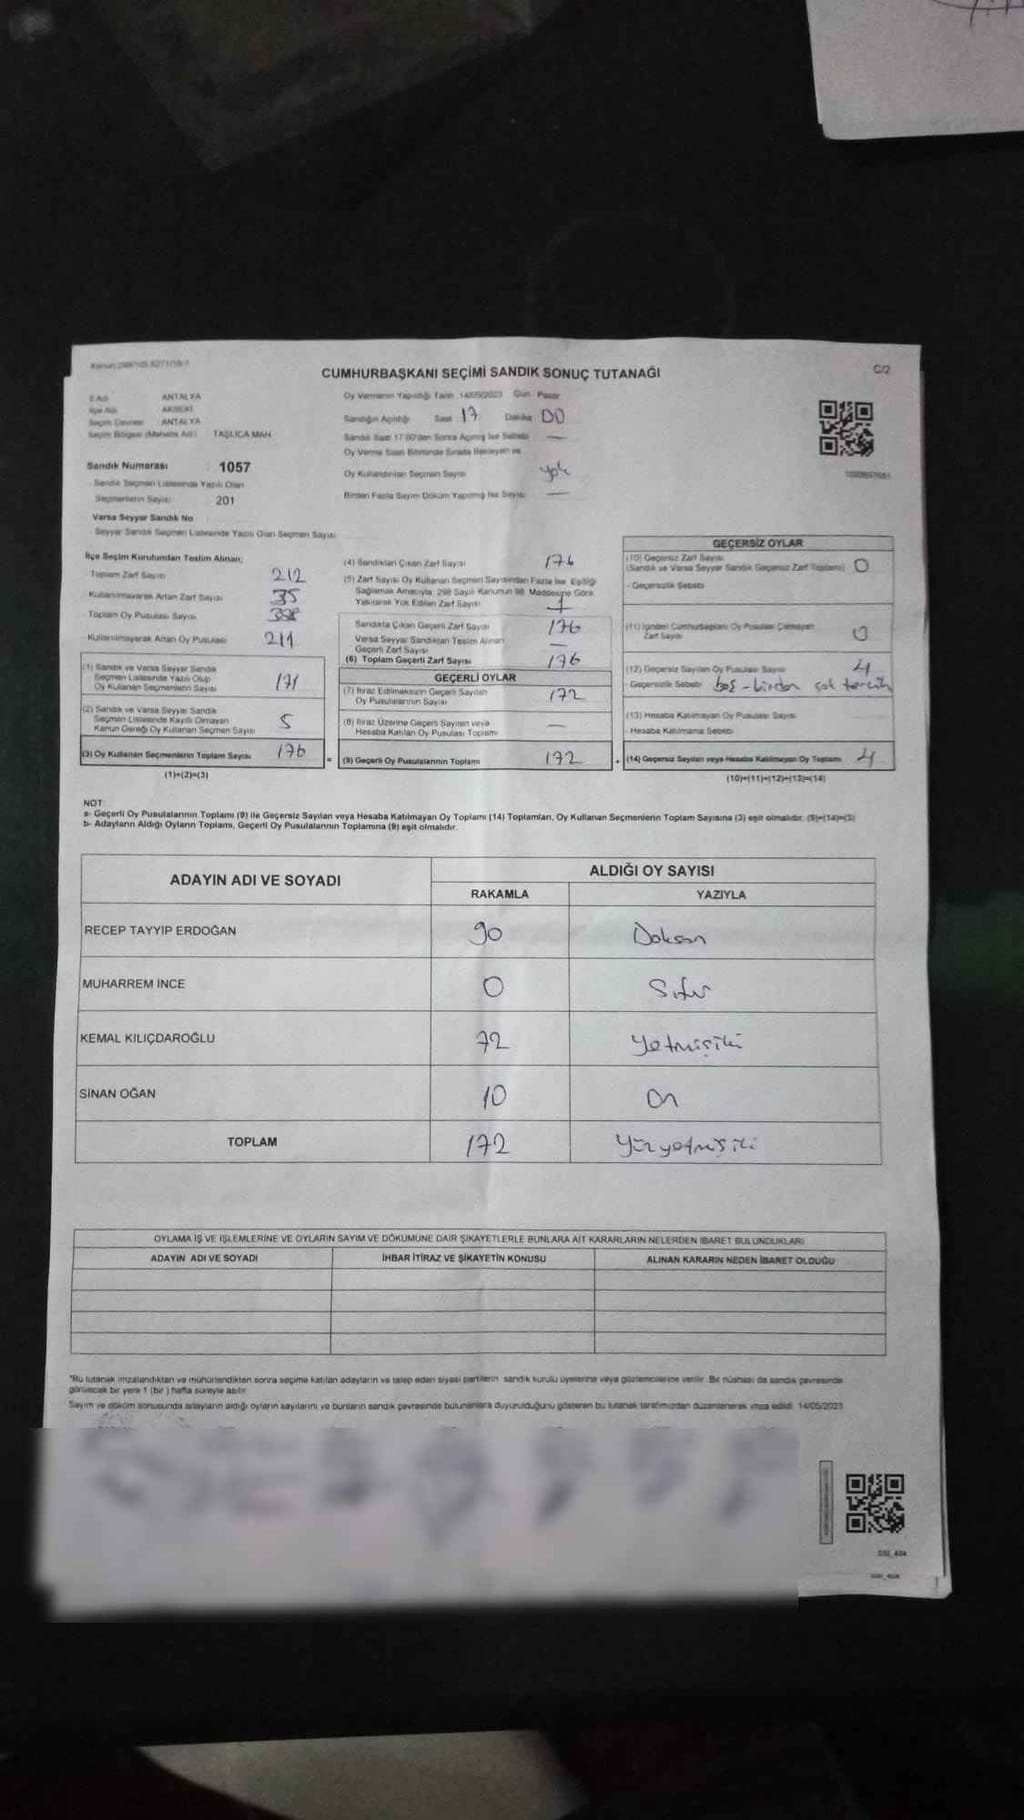 CUMHURBAŞKANI SEÇİMİ SANDIK SONUÇ TUTANAĞI
C/2
İl Adı ANTALYA
İlçe Adı AKSEKİ
Seçim Çevresi ANTALYA
Seçim Bölgesi (Mahalle Adı) TAŞLICA MAH
Sandık Numarası 1057
Sandık Seçmen Listesinde Yazılı Olan
Seçmenlerin Sayısı 201
Varsa Seyyar Sandık No
Seyyar Sandık Seçmen Listesinde Yazılı Olan Seçmen Sayısı
Oy Vermenin Yapıldığı Tarih 14/05/2023 Gün Pazar
Sandığın Açıldığı Saat 17 Dakika 00
Sandık Saat 17:00'den Sonra Açılmış İse Sebebi —
Oy Verme Saati Bitiminde Sırada Bekleyen ve
Oy Kullandırılan Seçmen Sayısı yok
Birden Fazla Sayım Döküm Yapılmış İse Sayısı —
İlçe Seçim Kurulundan Teslim Alınan;
Toplam Zarf Sayısı 212
Kullanılmayarak Artan Zarf Sayısı 35
Toplam Oy Pusulası Sayısı
Kullanılmayarak Artan Oy Pusulası 211
(1) Sandık ve Varsa Seyyar Sandık
Seçmen Listesinde Yazılı Olup
Oy Kullanan Seçmenlerin Sayısı 171
(2) Sandık ve Varsa Seyyar Sandık
Seçmen Listesinde Kayıtlı Olmayan
Kanun Gereği Oy Kullanan Seçmen Sayısı 5
(3) Oy Kullanan Seçmenlerin Toplam Sayısı 176
(1)+(2)=(3)
(4) Sandıktan Çıkan Zarf Sayısı 176
(5) Zarf Sayısı Oy Kullanan Seçmen Sayısından Fazla İse Eşitliği
Sağlamak Amacıyla 298 Sayılı Kanunun 98. Maddesine Göre
Yakılarak Yok Edilen Zarf Sayısı
Sandıkta Çıkan Geçerli Zarf Sayısı 176
Varsa Seyyar Sandıktan Teslim Alınan
Geçerli Zarf Sayısı —
(6) Toplam Geçerli Zarf Sayısı 176
GEÇERLİ OYLAR
(7) İtiraz Edilmeksizin Geçerli Sayılan
Oy Pusulalarının Sayısı 172
(8) İtiraz Üzerine Geçerli Sayılan veya
Hesaba Katılan Oy Pusulası Toplamı —
(9) Geçerli Oy Pusulalarının Toplamı 172
GEÇERSİZ OYLAR
(10) Geçersiz Zarf Sayısı
(Sandık ve Varsa Seyyar Sandık Geçersiz Zarf Toplamı) 0
- Geçersizlik Sebebi
(11) İçinden Cumhurbaşkanı Oy Pusulası Çıkmayan
Zarf Sayısı 0
(12) Geçersiz Sayılan Oy Pusulası Sayısı 4
- Geçersizlik Sebebi boş - birden çok tercih
(13) Hesaba Katılmayan Oy Pusulası Sayısı
- Hesaba Katılmama Sebebi
(14) Geçersiz Sayılan veya Hesaba Katılmayan Oy Toplamı 4
(10)+(11)+(12)+(13)=(14)
NOT:
a- Geçerli Oy Pusulalarının Toplamı (9) ile Geçersiz Sayılan veya Hesaba Katılmayan Oy Toplamı (14) Toplamları, Oy Kullanan Seçmenlerin Toplam Sayısına (3) eşit olmalıdır. (9)+(14)=(3)
b- Adayların Aldığı Oyların Toplamı, Geçerli Oy Pusulalarının Toplamına (9) eşit olmalıdır.
ADAYIN ADI VE SOYADI
ALDIĞI OY SAYISI
RAKAMLA YAZIYLA
RECEP TAYYİP ERDOĞAN 90 Doksan
MUHARREM İNCE 0 Sıfır
KEMAL KILIÇDAROĞLU 72 Yetmişiki
SİNAN OĞAN 10 On
TOPLAM 172 Yüzyetmişiki
OYLAMA İŞ VE İŞLEMLERİNE VE OYLARIN SAYIM VE DÖKÜMÜNE DAİR ŞİKAYETLERLE BUNLARA AİT KARARLARIN NELERDEN İBARET BULUNDUKLARI
ADAYIN ADI VE SOYADI İHBAR İTİRAZ VE ŞİKAYETİN KONUSU ALINAN KARARIN NEDEN İBARET OLDUĞU
"Bu tutanak imzalandıktan ve mühürlendikten sonra seçime katılan adayların ve talep eden siyasi partilerin sandık kurulu üyelerine veya gözlemcilerine verilir. Bir nüshası da sandık çevresinde
görülecek bir yere 1 (bir) hafta süreyle asılır.
Sayım ve döküm sonucunda adayların aldığı oyların sayılarını ve bunların sandık çevresinde bulunanlara duyurulduğunu gösteren bu tutanak tarafımızdan düzenlenerek imza edildi. 14/05/2023